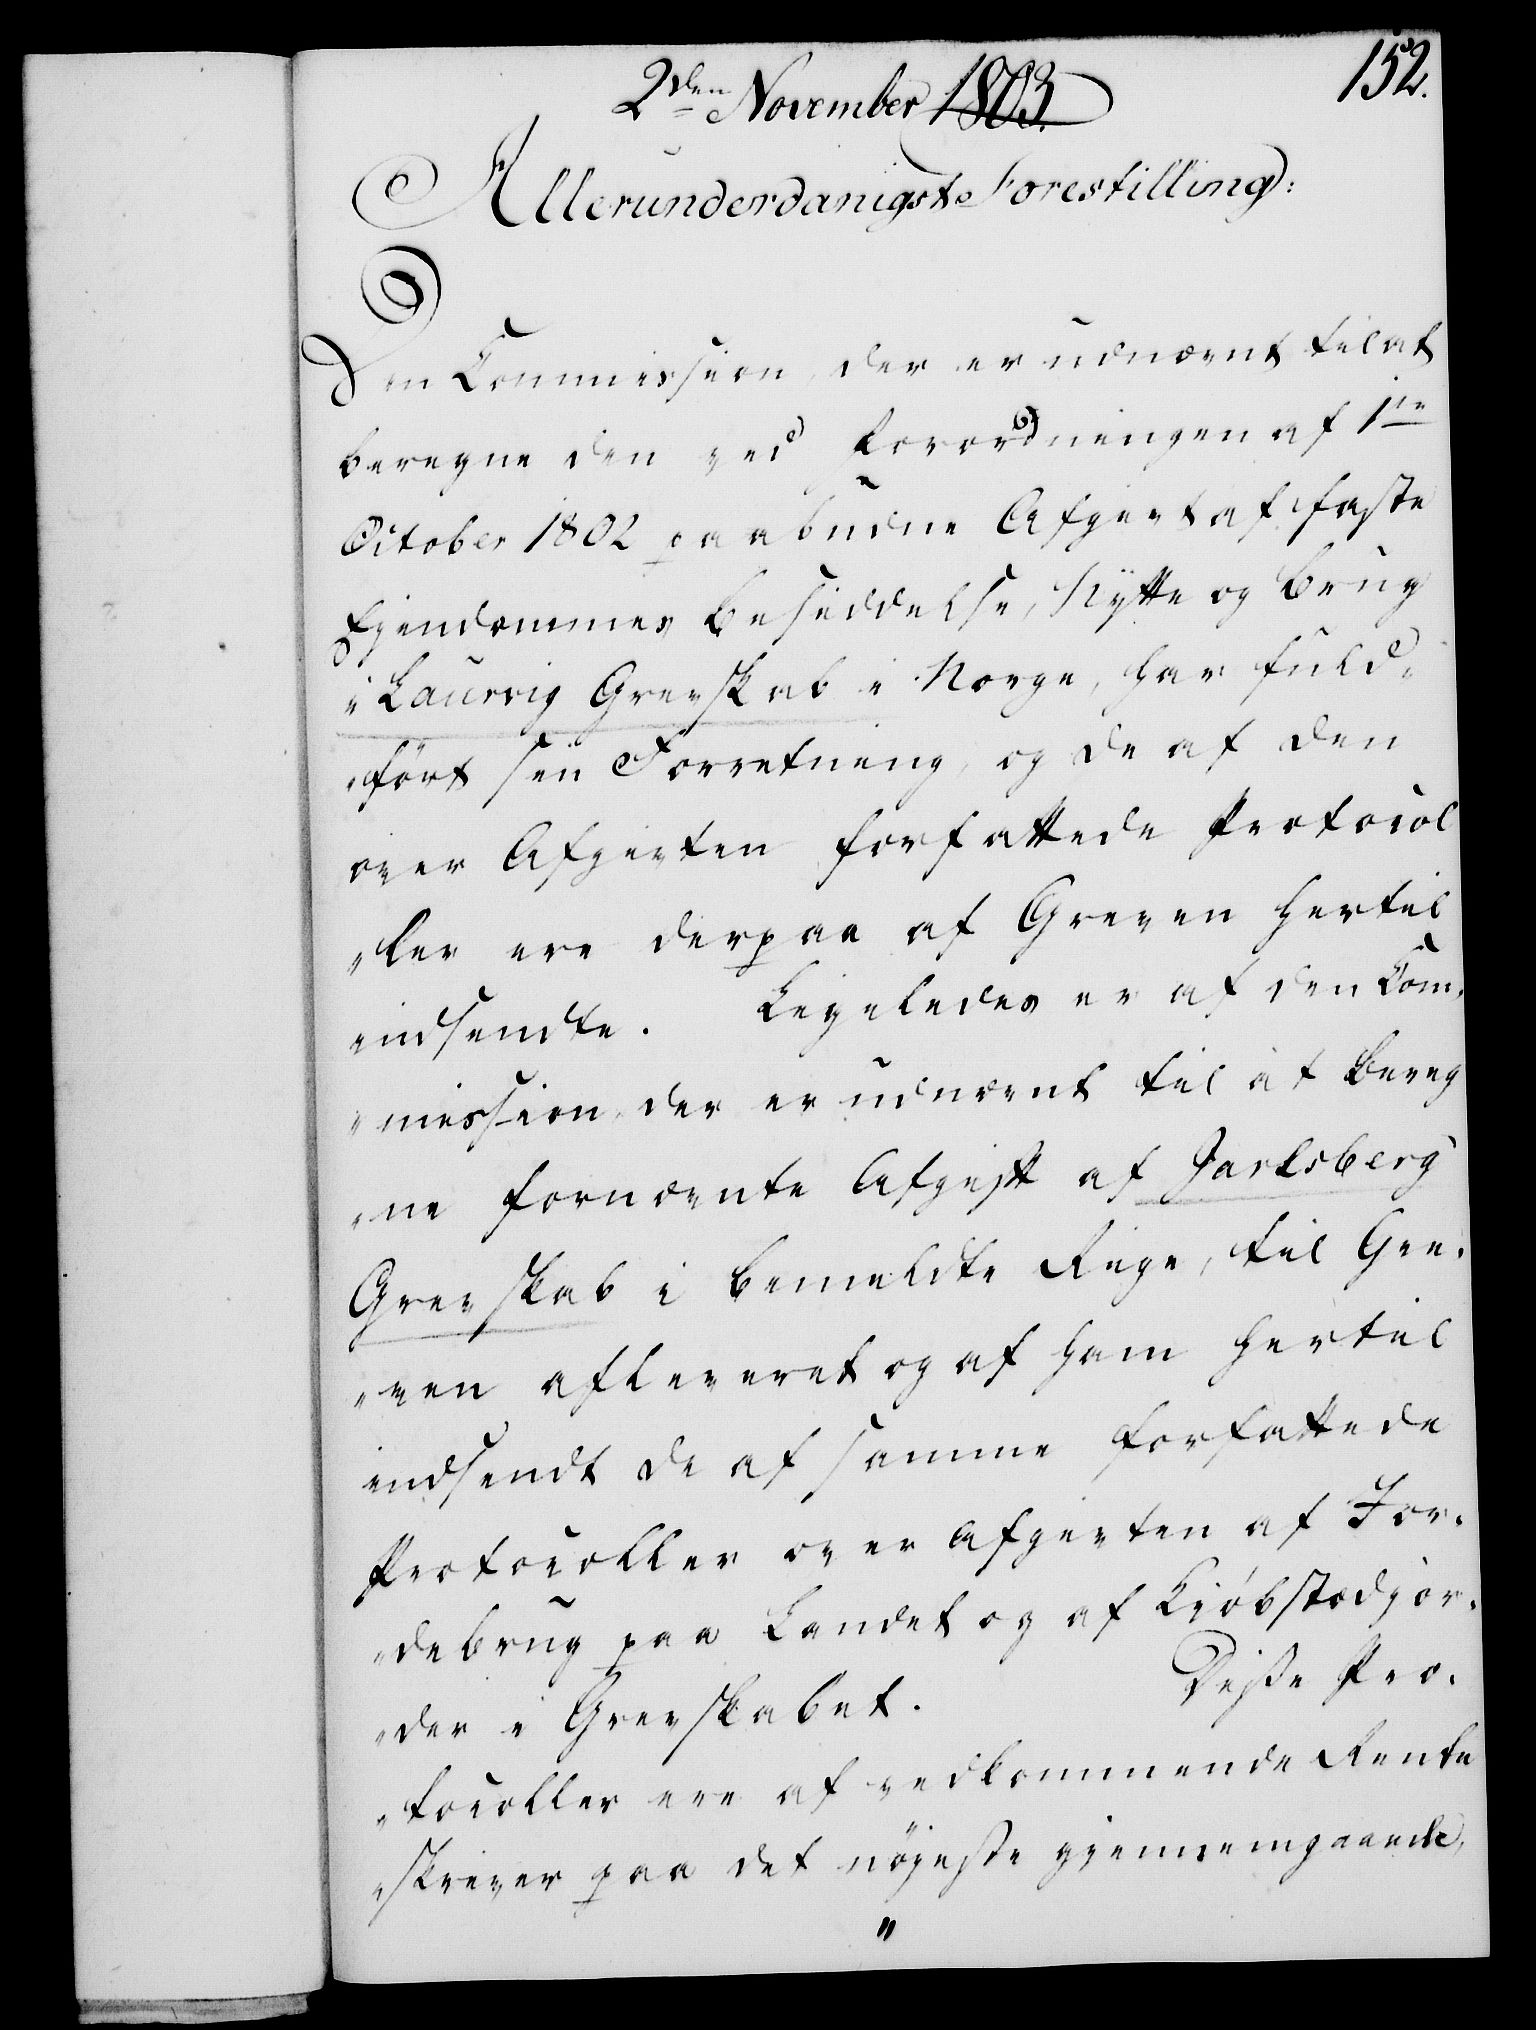 152.
2den November 1803.
Allerunderdanigste Forestilling:
Den Commission, der er udnævnt til at
beregne den ved Forordningen af 1ste
October 1802 paabudne Afgivt af faste
Ejendommes Besiddelse, Nytte og Brug
i Laurvig Grevskab i Norge, har fuld-
"ført sin Forretning, og de af den
over Afgivten forfattede Protocol
"ler ere derpaa af Greven hertil
indsendte. Ligeledes er af den Com-
"mission, der er udnævnt til at bereg
"ne fornævnte Afgift af Jarlsberg
Grevskab i bemeldte Rige, til Gre-
"ven afleveret og af ham hertil
indsendt de af samme forfattede
Protocoller over Afgivten af Jor-
"debrug paa Landet og af Kiøbstædjor-
"der i Grevskabet. Disse Pro-
"tocoller ere af vedkommende Rente
"skriver paa det nøjeste gjennemgaaede,
"